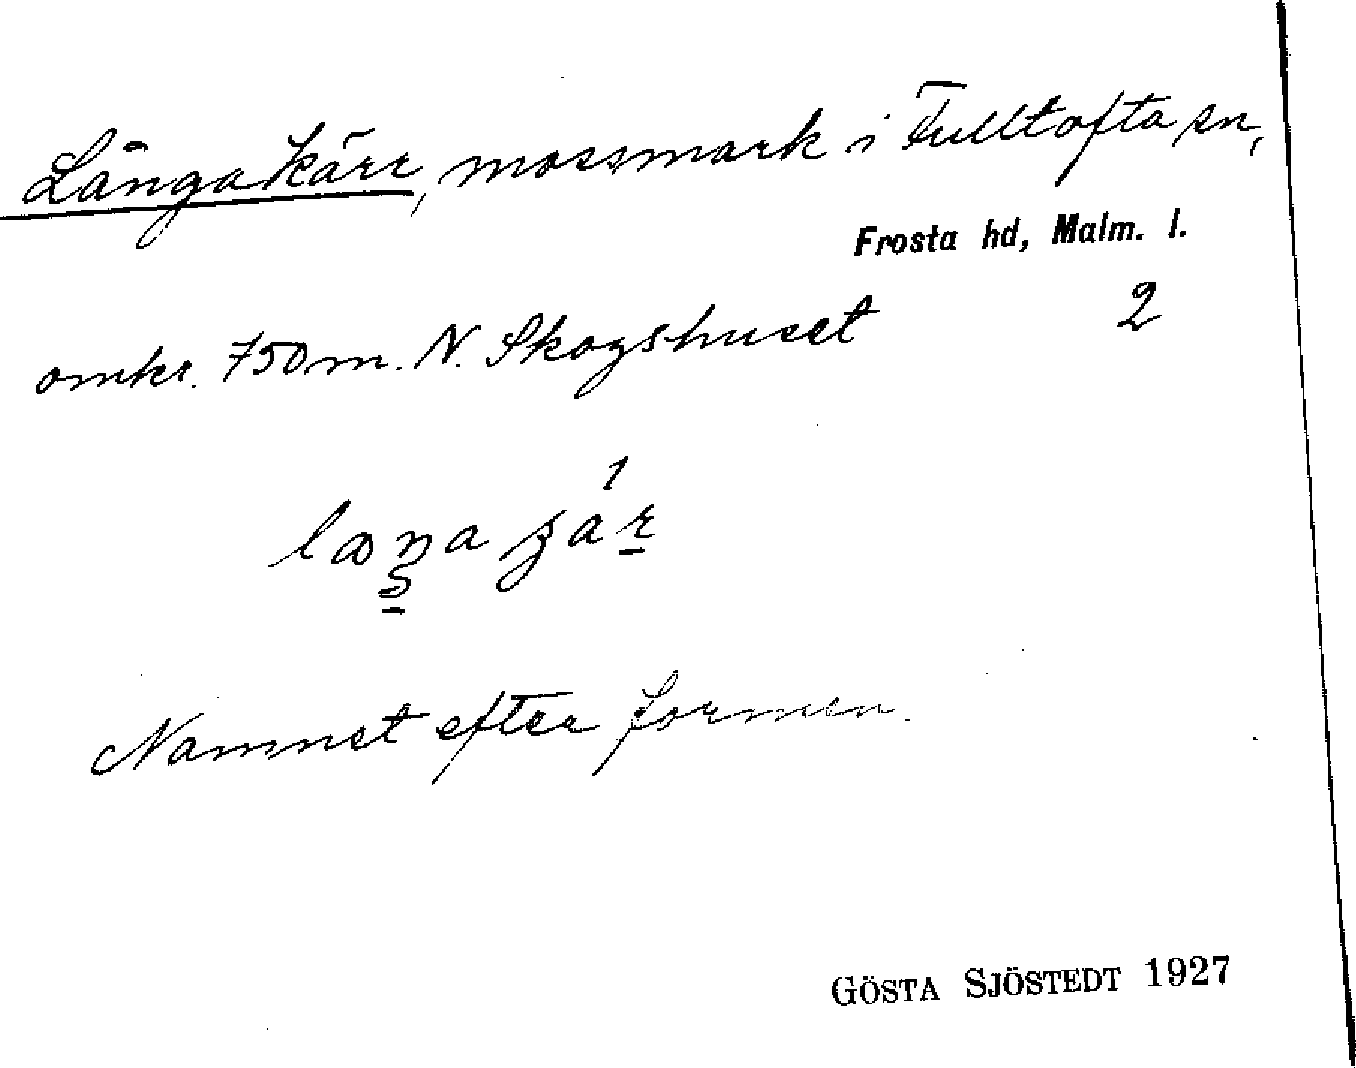 Långakärr, mossmark i Fulltofta sn,
Frosta hd, Malm. l.
2
omkr. 750 m. N. Skogshuset
Namnet efter formen.
GÖSTA SJÖSTEDT 1927